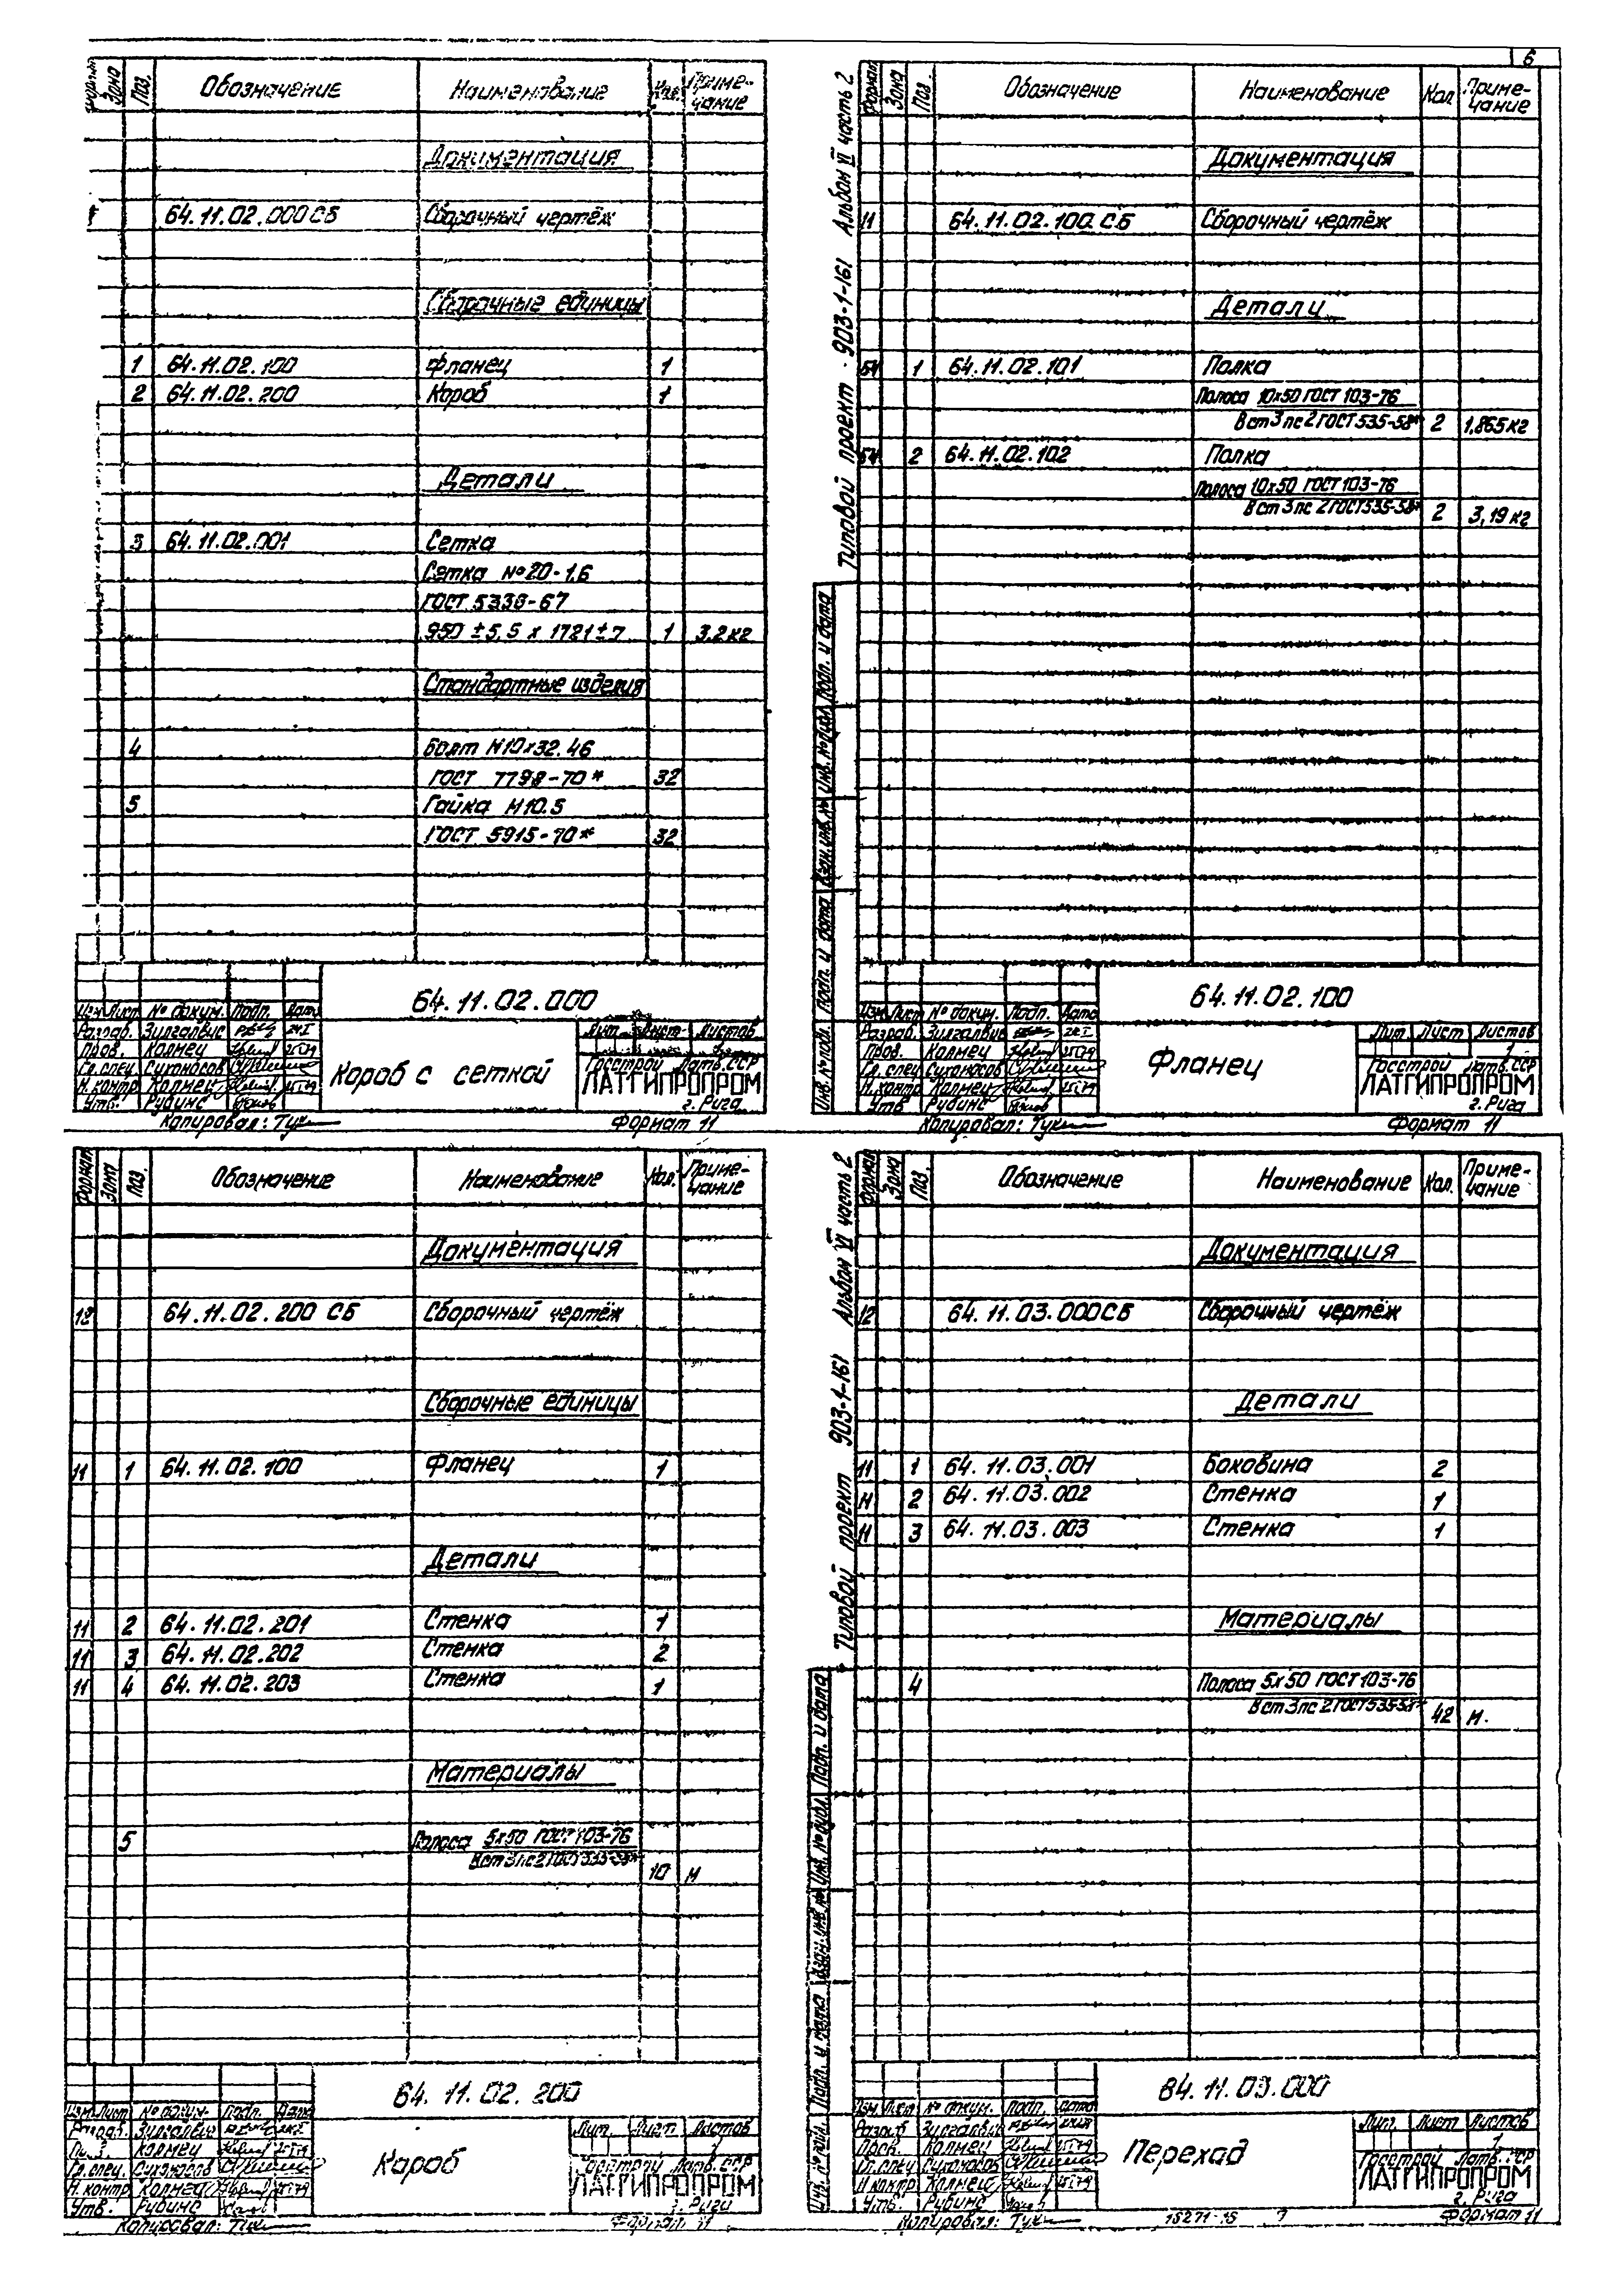 6
Зона Поз. Обозначение Наименование Кол. Приме-
чание
Документация
64.11.02.000 СБ Сборочный чертёж
Сборочные единицы
1 64.11.02.100 Фланец 1
2 64.11.02.200 Короб 1
Детали
3 64.11.02.001 Сетка
Сетка №20-1.6
ГОСТ 5336-67
950 ±5,5 х 1721±7 1 3.2кг
Стандартные изделия
4 Болт М10х32.46
ГОСТ 7798-70* 32
5 Гайка М10.5
ГОСТ 5915-70* 32
64.11.02.000
Изм Лист № докум. Подп. Дата
Разраб. Зилгалвис
Пров. Калмец
Гл.спец Суханосов
Н.контр Калмец
Утв. Рубинс
Короб с сеткой
Лит. Лист Листов
Госстрой Латв.ССР
ЛАТГИПРОПРОМ
г. Рига
Копировал: Формат 11
Типовой проект 903-1-161 Альбом VI часть 2
Формат Зона Поз. Обозначение Наименование Кол. Приме-
чание
Документация
11 64.11.02.100 СБ Сборочный чертёж
Детали
БЧ 1 64.11.02.101 Полка
Полоса 10х50 ГОСТ 103-76
В ст 3 пс 2 ГОСТ 535-58* 2 1,865кг
БЧ 2 64.11.02.102 Полка
Полоса 10х50 ГОСТ 103-76
В ст 3 пс 2 ГОСТ 535-58* 2 3,19кг
Инв. № подл. Подп. и дата Взам. инв. № Инв. № дубл. Подп. и дата
64.11.02.100
Изм Лист № докум. Подп. Дата
Разраб. Зилгалвис
Пров. Калмец
Гл.спец Суханосов
Н.контр Калмец
Утв. Рубинс
Фланец
Лит. Лист Листов
1
Госстрой Латв.ССР
ЛАТГИПРОПРОМ
г. Рига
Копировал: Формат 11
Формат Зона Поз. Обозначение Наименование Кол. Приме-
чание
Документация
12 64.11.02.200 СБ Сборочный чертёж
Сборочные единицы
11 1 64.11.02.100 Фланец 1
Детали
11 2 64.11.02.201 Стенка 1
11 3 64.11.02.202 Стенка 2
11 4 64.11.02.203 Стенка 1
Материалы
5 Полоса 5х50 ГОСТ 103-76
В ст 3 пс 2 ГОСТ 535-58*
10 м
64.11.02.200
Изм Лист № докум. Подп. Дата
Разраб. Зилгалвис
Калмец
Гл.спец. Суханосов
Н.контр Калмец
Утв. Рубинс
Короб
Лит. Лист Листов
1
Госстрой Латв.ССР
ЛАТГИПРОПРОМ
г. Рига
Копировал: Формат 11
Типовой проект 903-1-161 Альбом VI часть 2
Формат Зона Поз. Обозначение Наименование Кол. Приме-
чание
Документация
12 64.11.03.000СБ Сборочный чертёж
Детали
11 1 64.11.03.001 Боковина 2
11 2 64.11.03.002 Стенка 1
11 3 64.11.03.003 Стенка 1
Материалы
4 Полоса 5х50 ГОСТ 103-76
В ст 3 пс 2 ГОСТ 535-58*
42 м.
Инв. № подл. Подп. и дата Взам. инв. № Инв. № дубл. Подп. и дата
64.11.03.000
Изм Лист № докум. Подп. Дата
Разраб Зилгалвис
Пров. Калмец
Гл.спец Суханосов
Н.контр Калмец
Утв. Рубинс
Переход
Лит. Лист Листов
1
Госстрой Латв. ССР
ЛАТГИПРОПРОМ
г. Рига
Копировал: 7 Формат 11